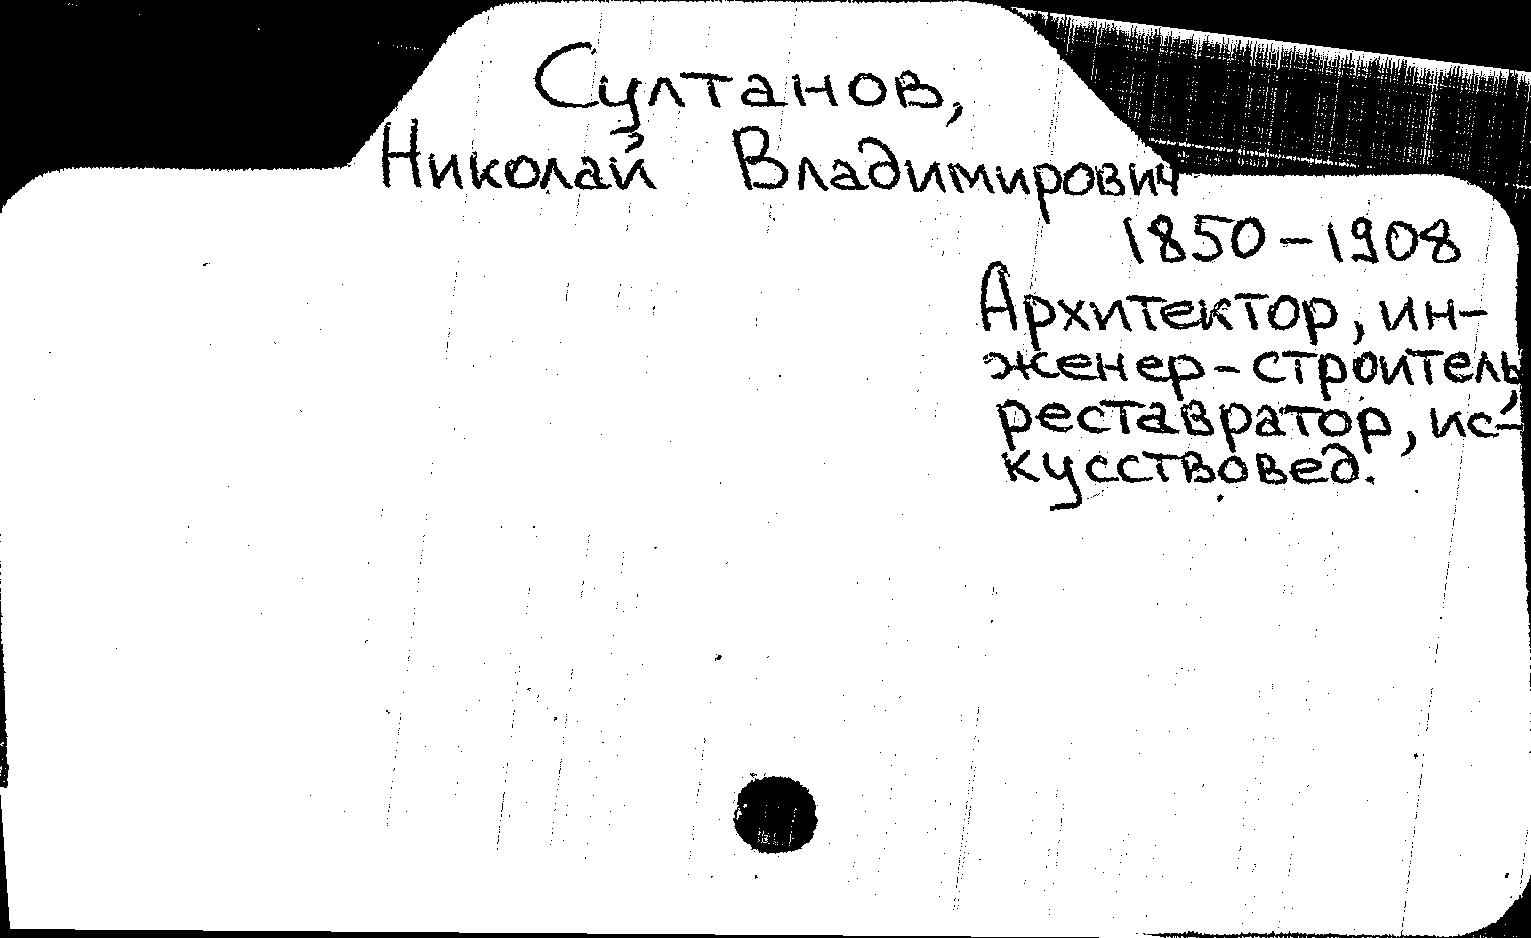 Султанов,
Николай Владимирович
1850-1908
Архитектор, ин-
женер-строитель,
реставратор, ис-
кусствовед.